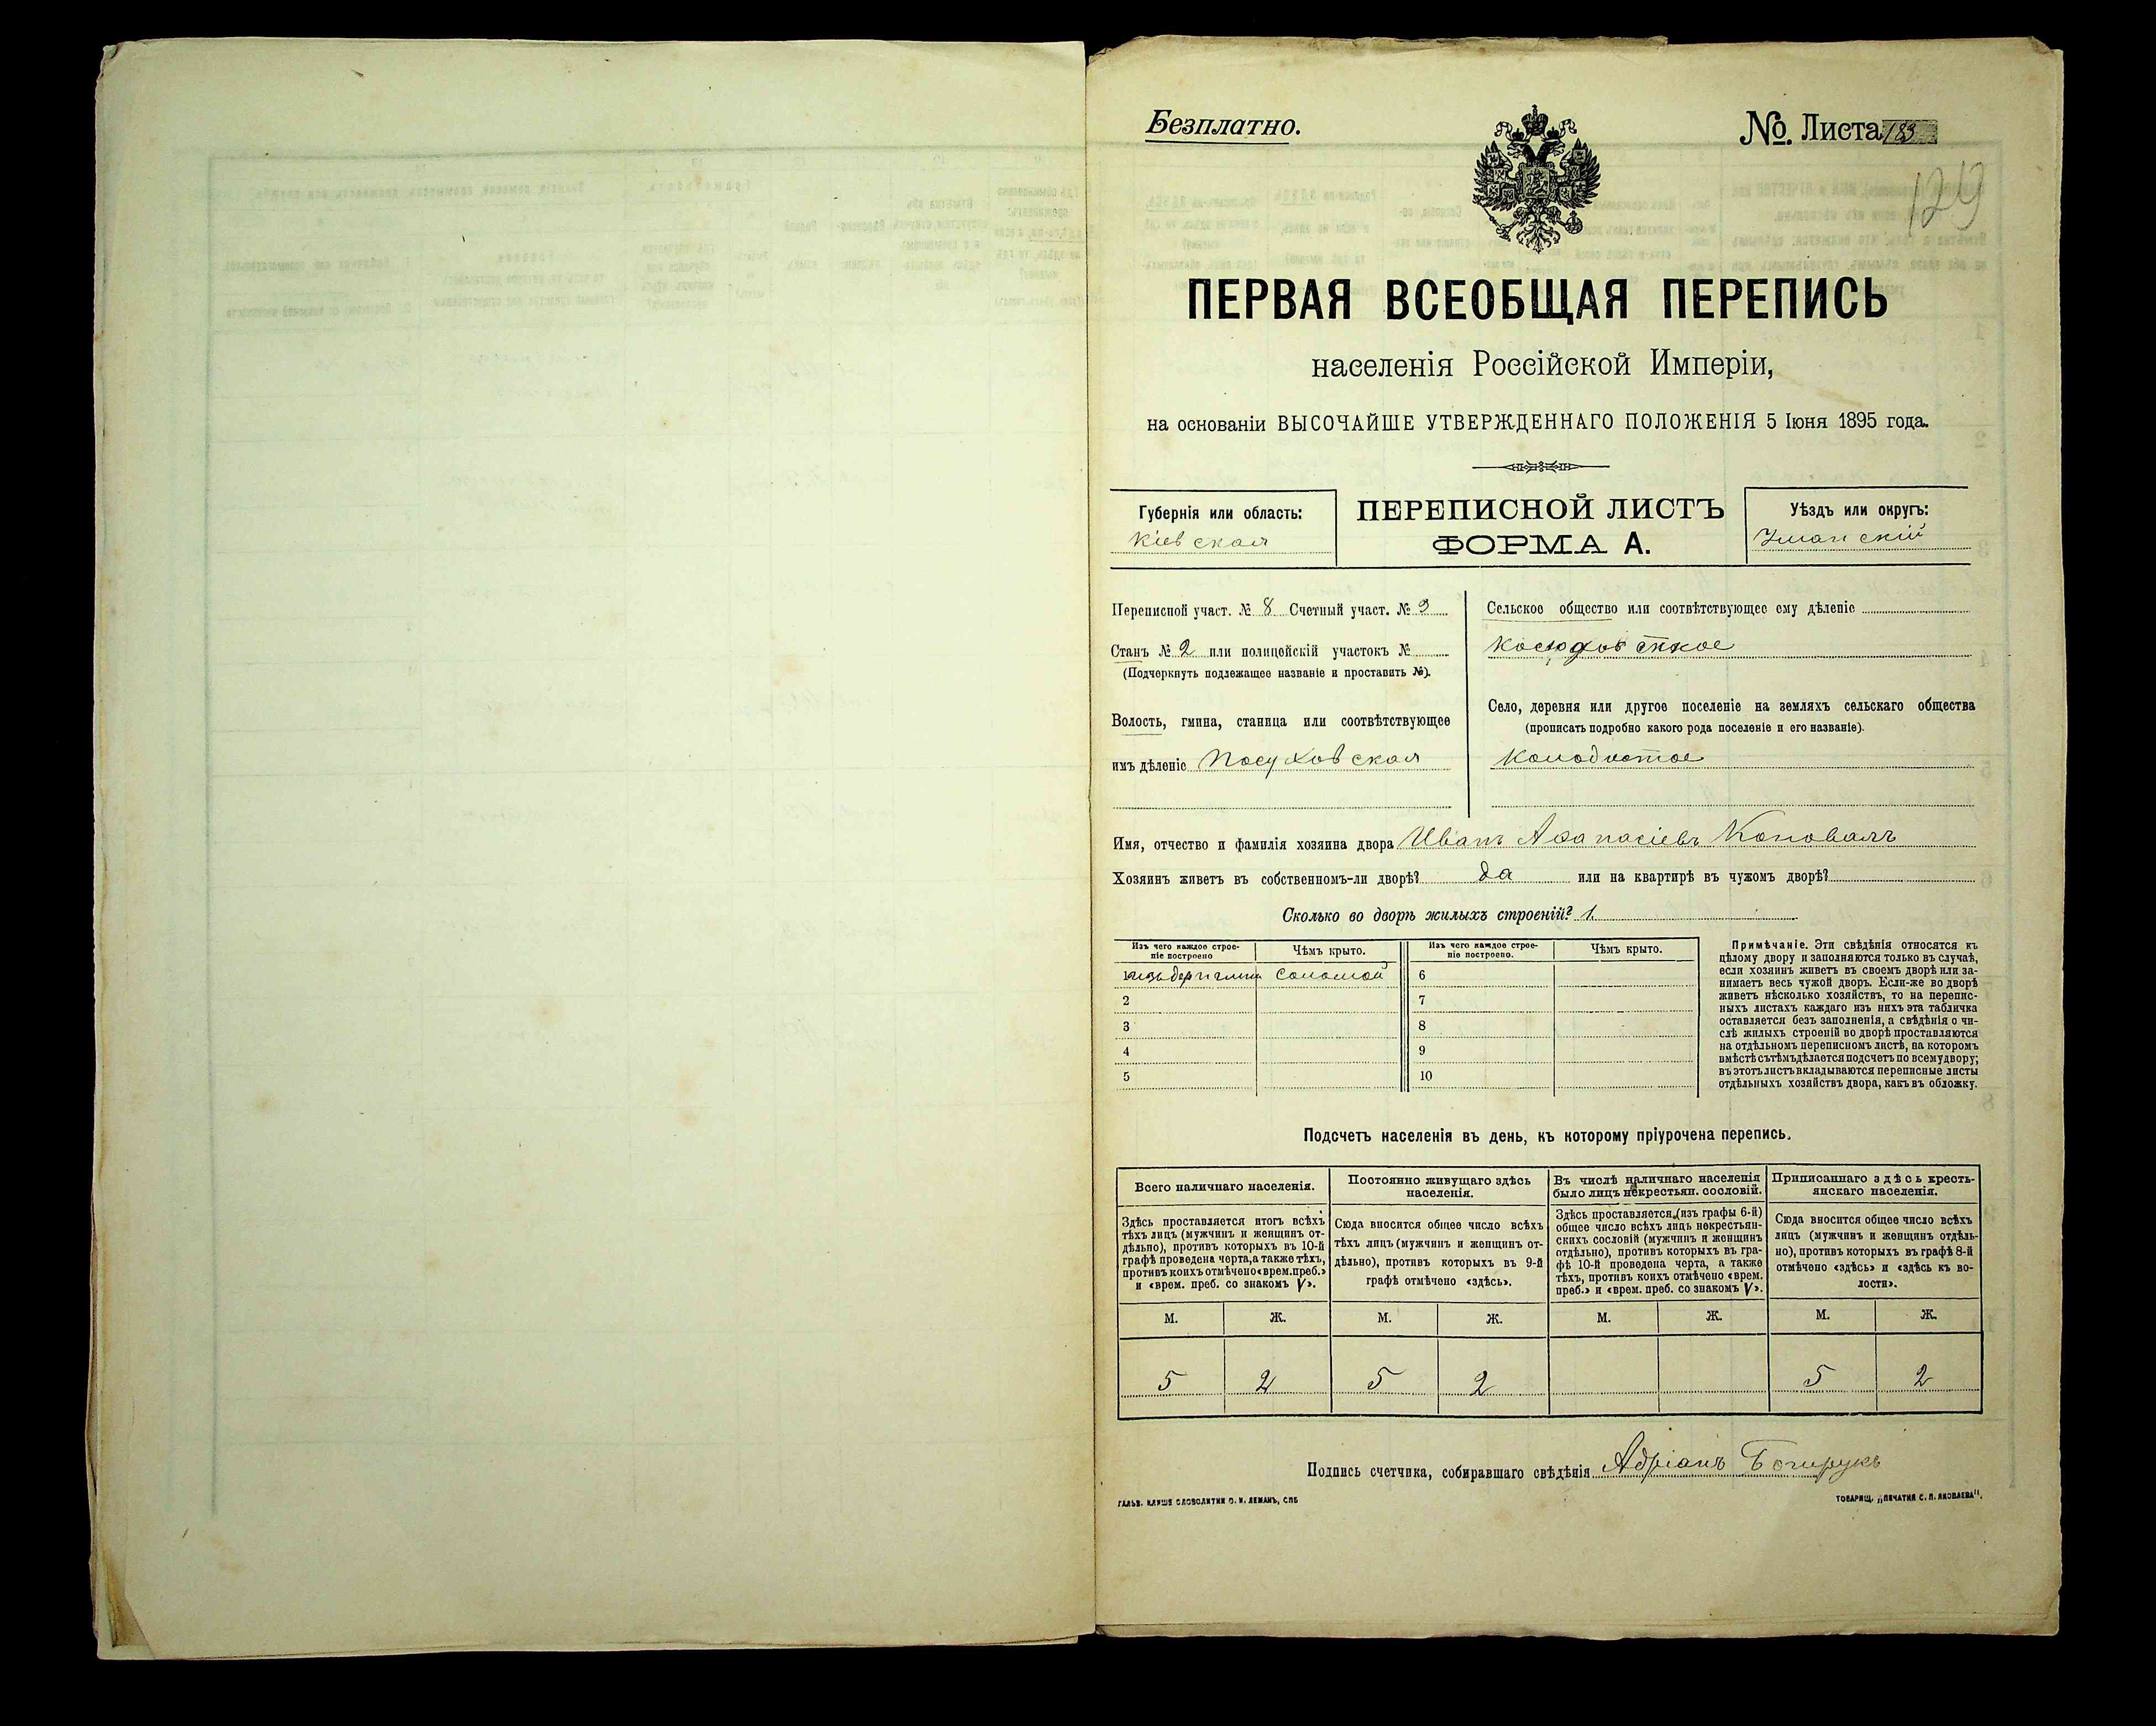 Безплатно.
№. Листа 183
129
ПЕРВАЯ ВСЕОБЩАЯ ПЕРЕПИСЬ
населенія Россійской Имперіи,
на основаніи ВЫСОЧАЙШЕ УТВЕРЖДЕННАГО ПОЛОЖЕНІЯ 5 Іюня 1895 года.
Губернія или область:
Кіевская
ПЕРЕПИСНОЙ ЛИСТЪ
ФОРМА А.
Уѣздъ или округъ:
Уманскій
Переписной участ. № 8 Счетный участ. № 3
Станъ № 2 или полицейскій участокъ №
(Подчеркнуть подлежащее названіе и проставить №).
Волость, гмина, станица или соотвѣтствующее
имъ дѣленіе Посуховская
Сельское общество или соотвѣтствующее ему дѣленіе
Село, деревня или другое поселеніе на земляхъ сельскаго общества
(прописать подробно какого рода поселеніе и его названіе).
Колодистое
Имя, отчество и фамилія хозяина двора Иванъ Афанасіевъ Коновалъ
Хозяинъ живетъ въ собственномъ-ли дворѣ? да или на квартирѣ въ чужомъ дворѣ?
Сколько во дворѣ жилыхъ строеній? 1.
Изъ чего каждое строе-
ніе построено
Чѣмъ крыто.
Изъ чего каждое строе-
ніе построено.
Чѣмъ крыто.
1 изъ дер и глины соломой 6
2 7
3 8
4 9
5 10
Примѣчаніе. Эти свѣдѣнія относятся къ
цѣлому двору и заполняются только въ случаѣ,
если хозяинъ живетъ въ своемъ дворѣ или за-
нимаетъ весь чужой дворъ. Если-же во дворѣ
живетъ нѣсколько хозяйствъ, то на перепис-
ныхъ листахъ каждаго изъ нихъ эта табличка
оставляется безъ заполненія, а свѣдѣнія о чи-
слѣ жилыхъ строеній во дворѣ проставляются
на отдѣльномъ переписномъ листѣ, на которомъ
вмѣстѣ съ тѣмъ дѣлается подсчетъ по всему двору;
въ этотъ листъ вкладываются переписные листы
отдѣльныхъ хозяйствъ двора, какъ въ обложку.
Подсчетъ населенія въ день, къ которому пріурочена перепись.
Всего наличнаго населенія.
Здѣсь проставляется итогъ всѣхъ
тѣхъ лицъ (мужчинъ и женщинъ от-
дѣльно), противъ которыхъ въ 10-й
графѣ проведена черта, а также тѣхъ,
противъ коихъ отмѣчено «врем. преб.»
и «врем. преб. со знакомъ V».
Постоянно живущаго здѣсь
населенія.
Сюда вносится общее число всѣхъ
тѣхъ лицъ (мужчинъ и женщинъ от-
дѣльно), противъ которыхъ въ 9-й
графѣ отмѣчено «здѣсь».
Въ числѣ наличнаго населенія
было лицъ некрестьян. сословій.
Здѣсь проставляется (изъ графы 6-й)
общее число всѣхъ лицъ некрестьян-
скихъ сословій (мужчинъ и женщинъ
отдѣльно), противъ которыхъ въ гра-
фѣ 10-й проведена черта, а также
тѣхъ, противъ коихъ отмѣчено «врем.
преб.» и «врем. преб. со знакомъ V».
Приписаннаго здѣсь кресть-
янскаго населенія.
Сюда вносится общее число всѣхъ
лицъ (мужчинъ и женщинъ отдѣль-
но), противъ которыхъ въ графѣ 8-й
отмѣчено «здѣсь» и «здѣсь къ во-
лости».
М. Ж. М. Ж. М. Ж. М. Ж.
5 2 5 2 5 2
Подпись счетчика, собиравшаго свѣдѣнія Адріанъ
ГАЛЬВ. КЛИШЕ СЛОВОЛИТНИ О. И. ЛЕМАНЪ, СПБ
ТОВАРИЩ. „ПЕЧАТНЯ С. П. ЯКОВЛЕВА".